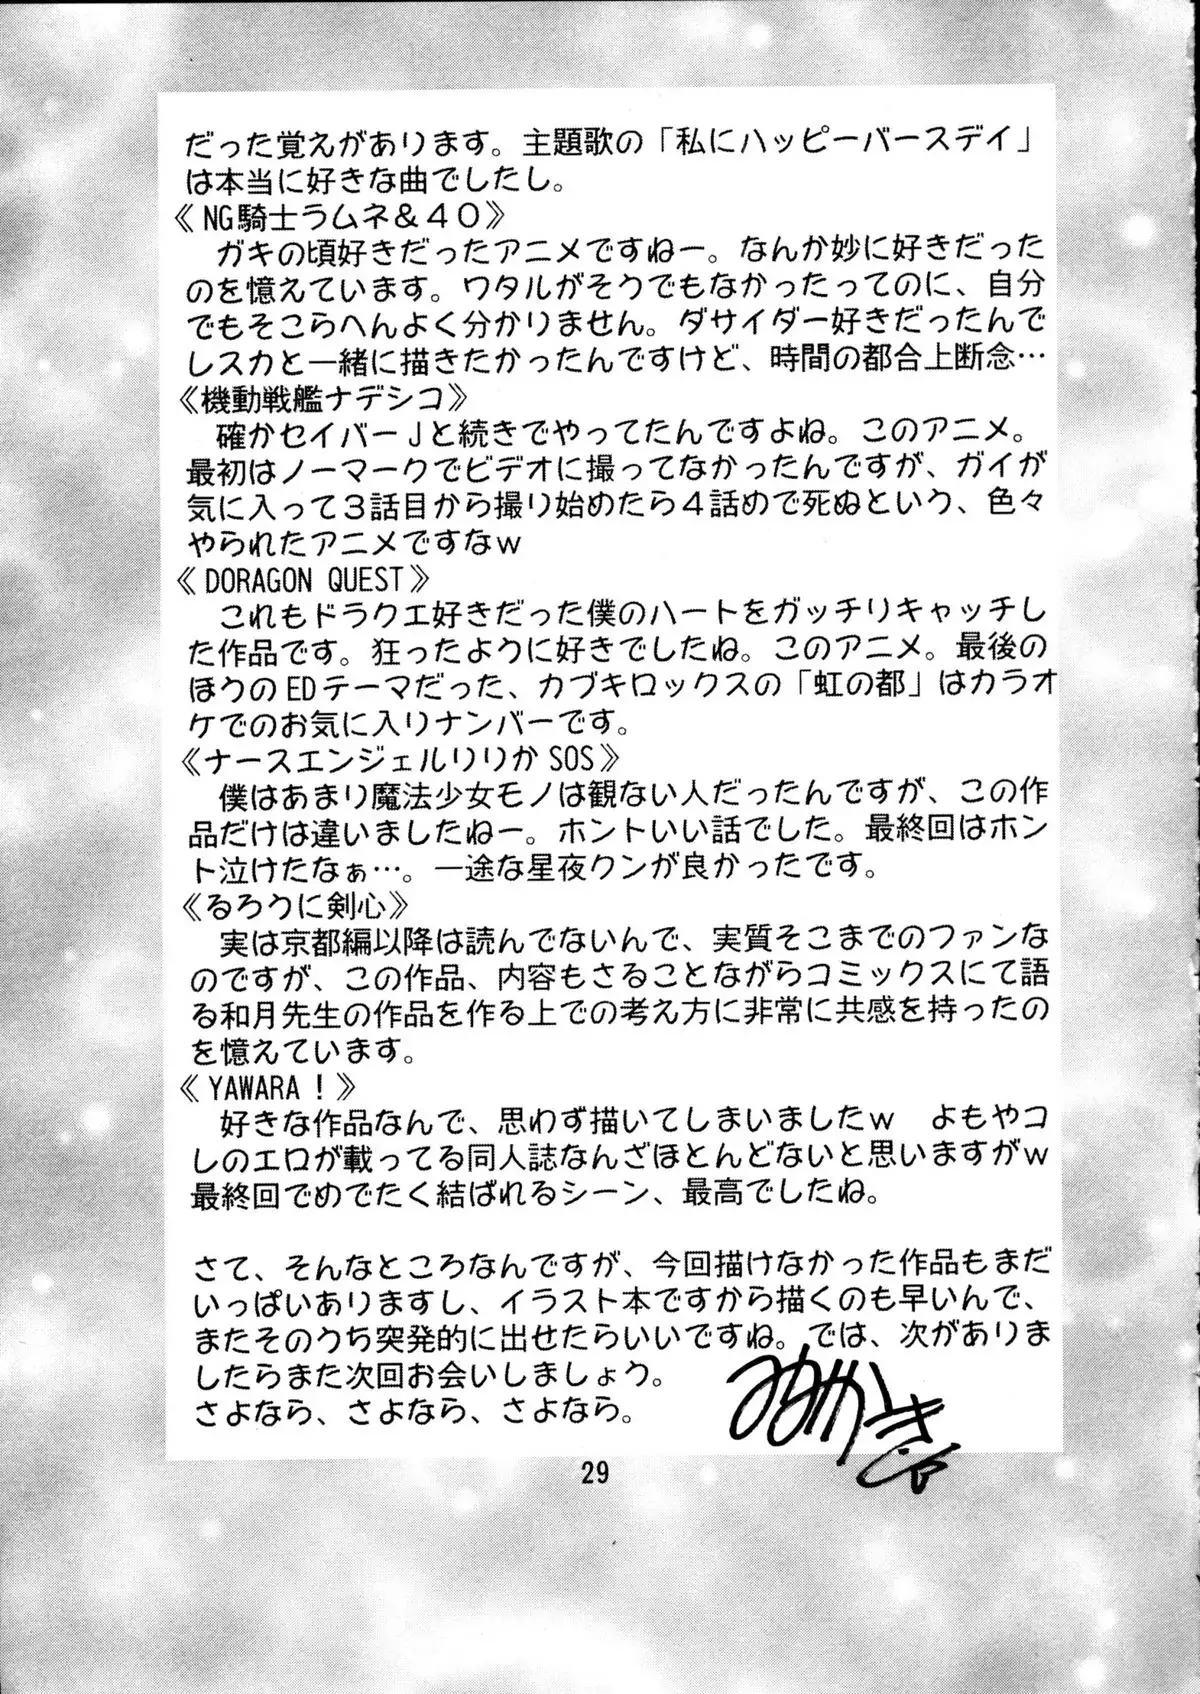 だった覚えがあります。主題歌の「私にハッピーバースデイ」
は本当に好きな曲でしたし。
《NG騎士ラムネ&40》
ガキの頃好きだったアニメですねー。なんか妙に好きだった
のを憶えています。ワタルがそうでもなかったってのに、自分
でもそこらへんよく分かりません。ダサイダー好きだったんで
レスカと一緒に描きたかったんですけど、時間の都合上断念…
《機動戦艦ナデシコ》
確かセイバーJと続きでやってたんですよね。このアニメ。
最初はノーマークでビデオに撮ってなかったんですが、ガイが
気に入って3話目から撮り始めたら4話めで死ぬという、色々
やられたアニメですなw
《DORAGON QUEST》
これもドラクエ好きだった僕のハートをガッチリキャッチし
た作品です。狂ったように好きでしたね。このアニメ。最後の
ほうのEDテーマだった、カブキロックスの「虹の都」はカラオ
ケでのお気に入りナンバーです。
《ナースエンジェルりりかSOS》
僕はあまり魔法少女モノは観ない人だったんですが、この作
品だけは違いましたねー。ホントいい話でした。最終回はホン
ト泣けたなぁ…。一途な星夜クンが良かったです。
《るろうに剣心》
実は京都編以降は読んでないんで、実質そこまでのファンな
のですが、この作品、内容もさることながらコミックスにて語
る和月先生の作品を作る上での考え方に非常に共感を持ったの
を憶えています。
《YAWARA!》
好きな作品なんで、思わず描いてしまいましたw　よもやコ
レのエロが載ってる同人誌なんざほとんどないと思いますがw
最終回でめでたく結ばれるシーン、最高でしたね。
さて、そんなところなんですが、今回描けなかった作品もまだ
いっぱいありますし、イラスト本ですから描くのも早いんで、
またそのうち突発的に出せたらいいですね。では、次がありま
したらまた次回お会いしましょう。
さよなら、さよなら、さよなら。
29